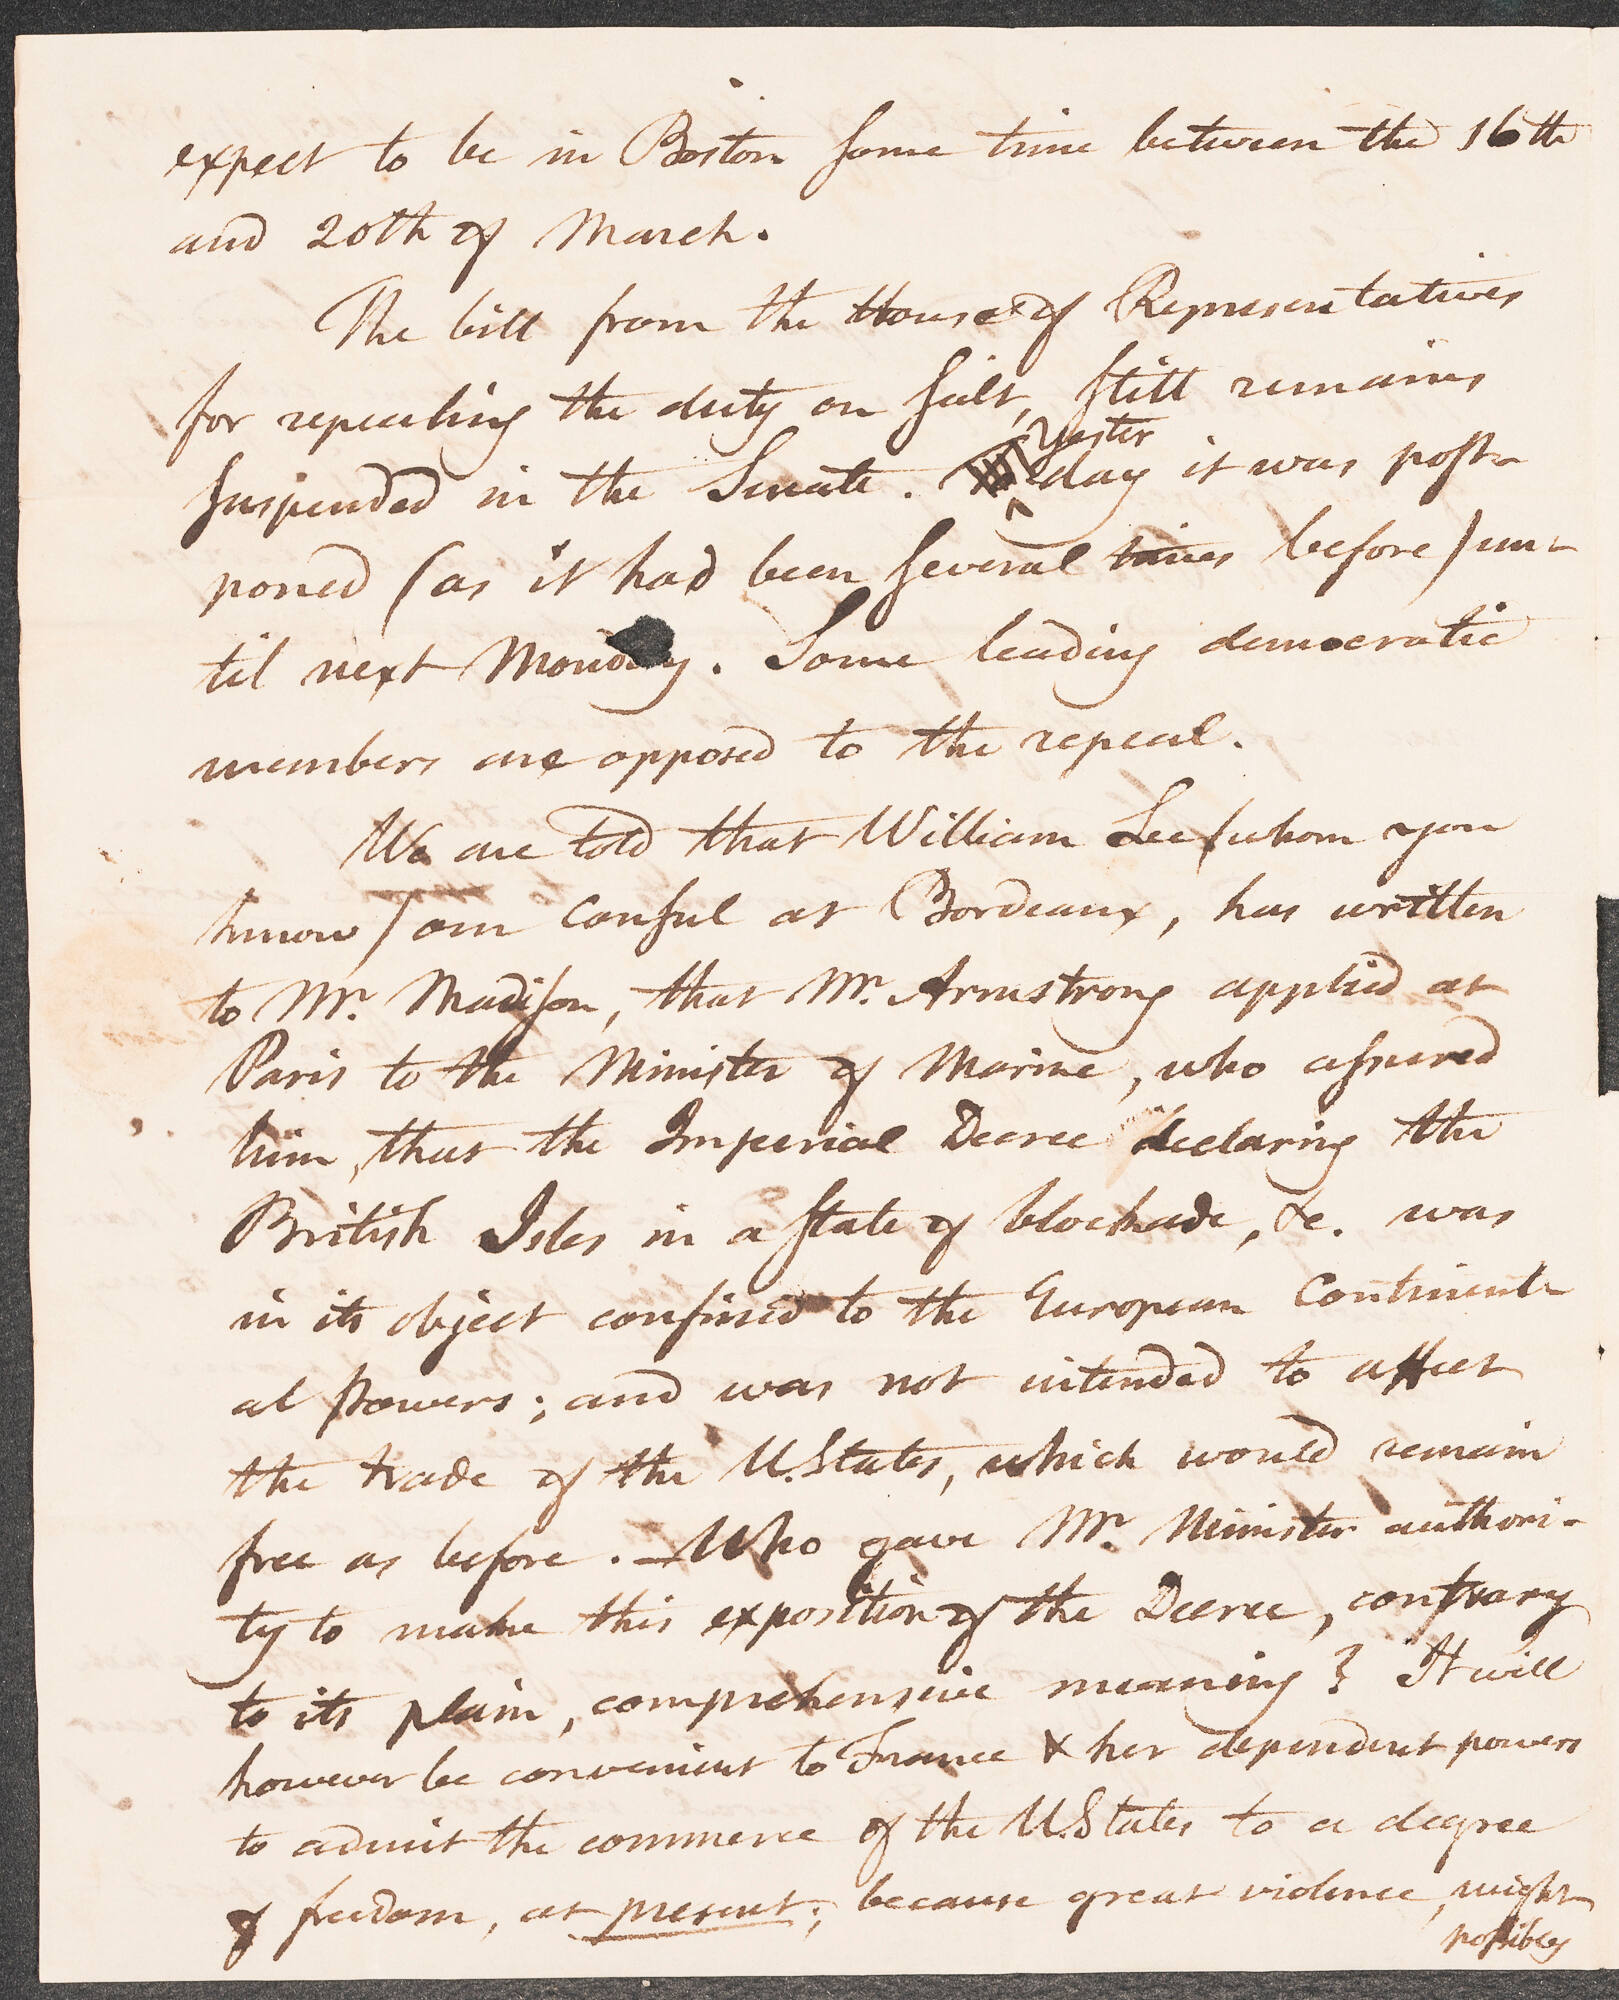 expect to be in Boston some time between the 16th
and 20th of March.
The bill from the House of Representatives
for repealing the duty on salt, still remains
suspended in the Senate. yester
day it was post-
poned (as it had been several times before) un-
til next Monday. Some leading democratic
members are opposed to the repeal.
We are told that William Lee (whom you
know) our Consul at Bordeaux, has written
to Mr. Madison, that Mr. Armstrong applied at
Paris to the Minister of Marine, who assured
him, that the Imperial Decree declaring the
British Isles in a state of blockade, &c. was
in its object confined to the European Continent-
al powers; and was not intended to affect
the trade of the U. States, which would remain
free as before. — Who gave Mr. Minister authori-
ty to make this exposition of the Decree, contrary
to its plain, comprehensive meaning? It will
however be convenient to France & her dependent powers
to admit the commerce of the U. States to a degree
of freedom, at present; because great violence, might
possibly